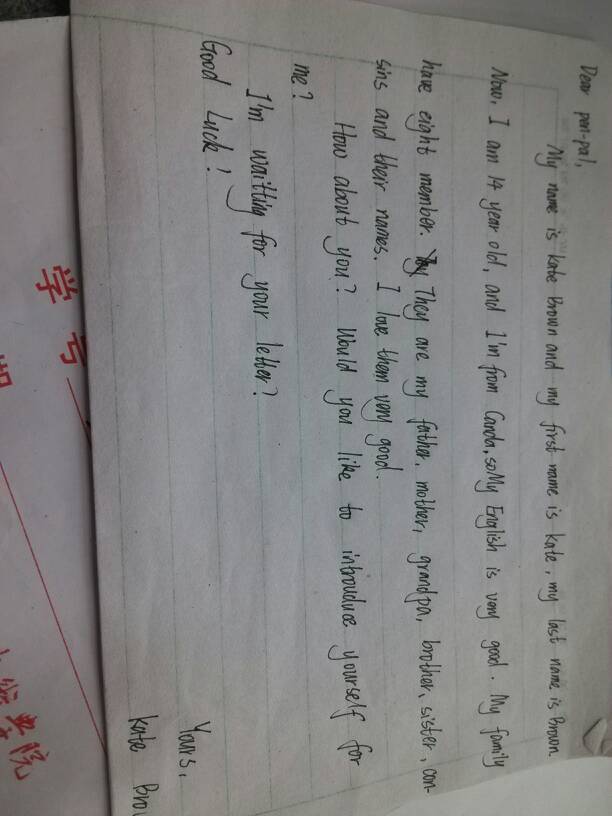 Dear pen-pal,
My name is kate Brown and my first name is kate, my last name is Brown.
Now, I am 14 year old, and I'm from Canda, so My English is very good. My family
have eight member. They are my father, mother, grandpa, brother, sister, con-
sins and their names. I love them very good.
How about you? Would you like to introuduce yourself for
me?
I'm waitting for your letter?
Good Luck!
Yours,
kate Brow
学号
学院